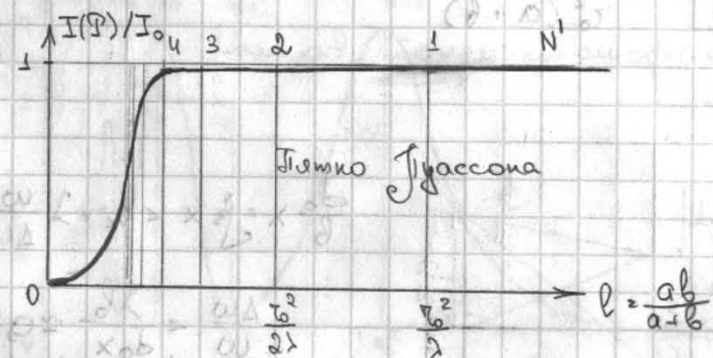 I(P)/I₀ 4 3 2 1 N'
1
Пятно Пуассона
0 r₀²/2λ r₀²/λ ℓ = ab/a+b